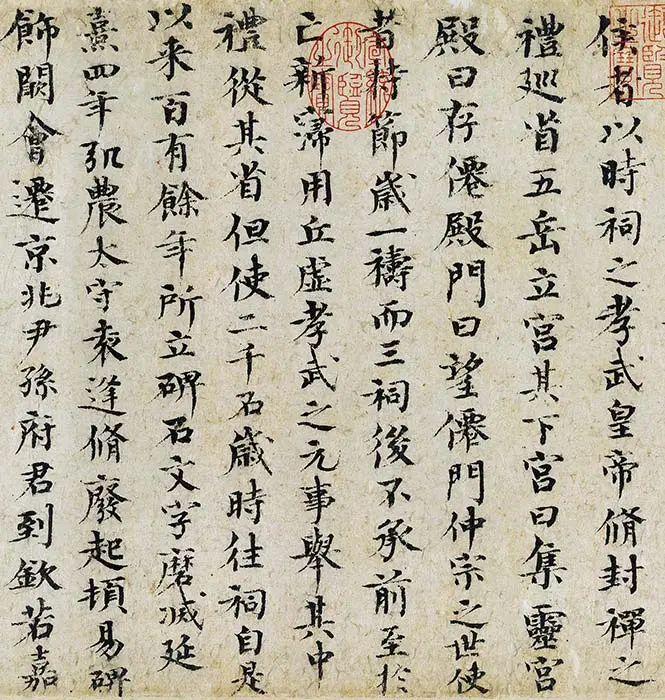 侯者以時祠之孝武皇帝脩封禪之
禮巡省五岳立宮其下宮曰集靈宮
殿曰存僊殿門曰望僊門仲宗之世使
者持節歲一禱而三祠後不承前至於
亡新寖用丘虛孝武之元事舉其中
禮從其省但使二千石歲時往祠自是
以来百有餘年所立碑石文字磨滅延
熹四年弘農太守袁逢脩廢起頓易碑
飾闕會遷京兆尹孫府君到欽若嘉
御覽
御覽